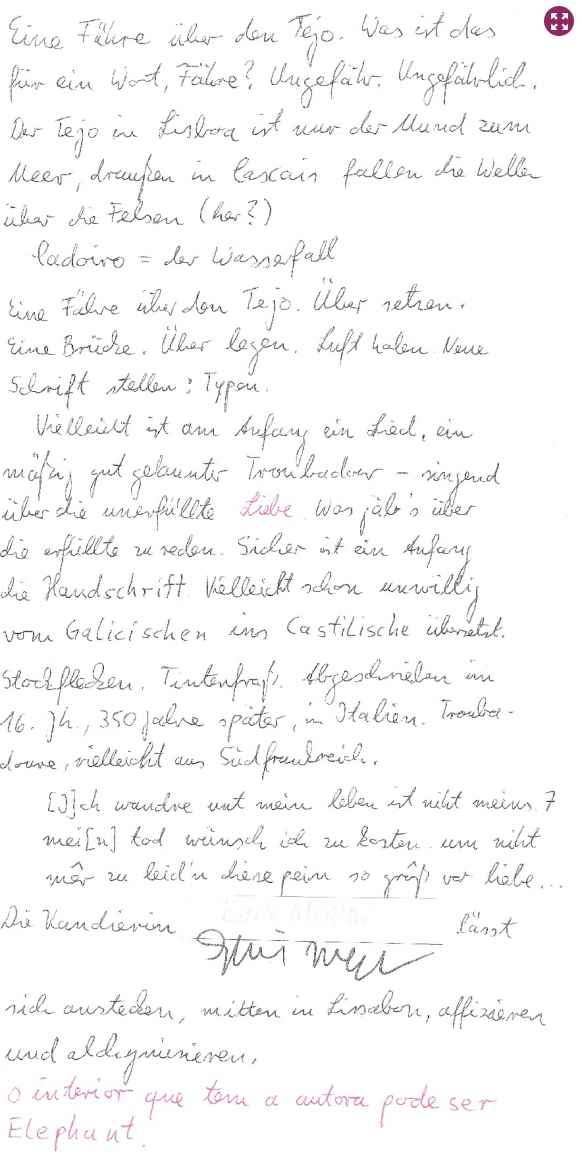 Eine Fähre über den Tejo. Was ist das
für ein Wort, Fähre? Ungefähr. Ungefährlich.
Der Tejo in Lisboa ist nur der Mund zum
Meer, draußen in Cascais fallen die Wellen
über die Felsen (her?)
ladoiro = der Wasserfall
Eine Fähre über den Tejo. Über setzen.
Eine Brücke. Über legen. Luft holen. Neue
Schrift stellen: Typen.
Vielleicht ist am Anfang ein Lied, ein
mäßig gut gelaunter Troubadour – singend
über die unerfüllte Liebe. Was gäb's über
die erfüllte zu reden. Sicher ist ein Anfang
die Handschrift. Vielleicht schon unwillig
vom Galicischen ins Castilische übersetzt.
Stockflecken. Tintenfraß. Abgeschrieben im
16. Jh., 350 Jahre später, in Italien. Trouba-
doure, vielleicht aus Südfrankreich.
[I]ch wandre unt mein leben ist niht meins 7
mei[n] tod wünsch ich zu kosten um niht
mêr zu leid'n diese pein so grôß vor liebe...
Die lässt
sich anstecken, mitten in Lissabon, affizieren
und
o interior que tem a autora pode ser
Elephant.